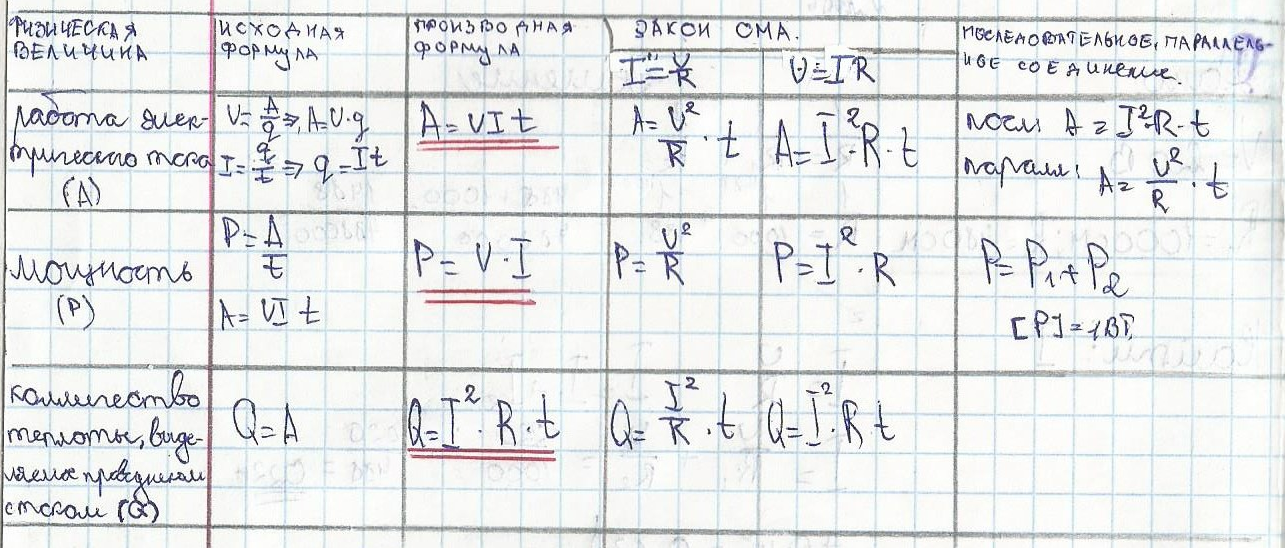 ФИЗИЧЕСКАЯ
ВЕЛИЧИНА
ИСХОДНАЯ
ФОРМУЛА
ПРОИЗВОДНАЯ
ФОРМУЛА
ЗАКОН ОМА.
I = U/R
U = IR
ПОСЛЕДОВАТЕЛЬНОЕ, ПАРАЛЛЕЛЬ-
НОЕ СОЕДИНЕНИЕ.
работа элек-
трического тока
(A)
U = A/q ⇒ A = U·q
I = q/t ⇒ q = It
A = UIt
A = U²/R · t
A = I²·R·t
посл: A = I²·R·t
паралл: A = U²/R · t
мощность
(P)
P = A/t
A = UIt
P = U·I
P = U²/R
P = I²·R
P = P₁ + P₂
[P] = 1Вт
колличество
теплоты, выде-
ляемое проводником
с током (Q)
Q = A
Q = I²·R·t
Q = I²/R · t
Q = I²·R·t